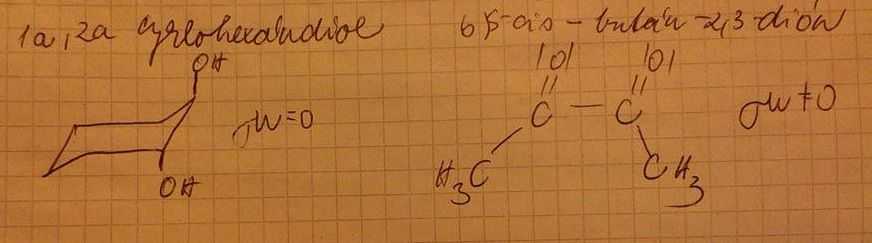 1a, 2a cyclohexandiol
OH
OH
μ=0
s-cis-bután-2,3-dión
|O| |O|
C — C
H₃C CH₃
μ≠0